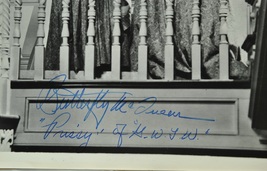 Butterfly McQueen
"Prissy" of "G.W.T.W."